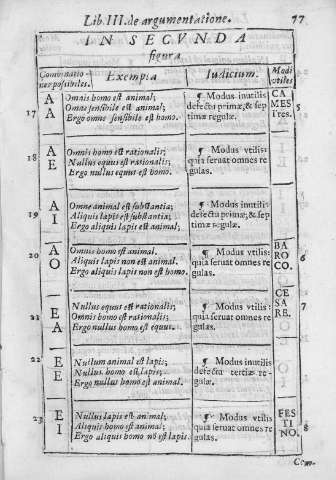 Lib. III. de argumentatione. 77
IN SECVNDA
figura
Combinationes possibiles. Exempla Iudicium. Modi vtiles
17 A A
Omnis homo est animal;
Omne sensibile est animal;
Ergo omne sensibile est homo.
¶ Modus inutilis
defectu primæ, & sep
timæ regulæ.
CA
MES
Tres.
5
18 A E
Omnis homo est rationalis;
Nullus equus est rationalis;
Ergo nullus equus est homo.
¶ Modus vtilis:
quia seruat omnes re
gulas.
19 A I
Omne animal est substantia;
Aliquis lapis est substantia;
Ergo aliquis lapis est animal;
¶ Modus inutilis:
defectu primæ; & sep
timæ regulæ.
20 A O
Omnis homo est animal.
Aliquis lapis non est animal.
Ergo aliquis lapis non est homo.
¶ Modus vtilis:
quia seruat omnes re
gulas.
BA
ROCO.
6
E A
Nullus equus est rationalis;
Omnis homo est rationalis;
Ergo nullus homo est equus.
¶ Modus vtilis:
quia seruat omnes re
gulas.
CE
SA
RE.
7
22 E E
Nullum animal est lapis;
Nullus homo est lapis;
Ergo nullus homo est animal.
¶ Modus inutilis
defectu tertiæ re-
gulæ.
23 E I
Nullus lapis est animal;
Aliquis homo est animal;
Ergo aliquis homo nō est lapis.
¶ Modus vtilis
quia seruat omnes re
gulas.
FES
TI
NO.
8
Com-